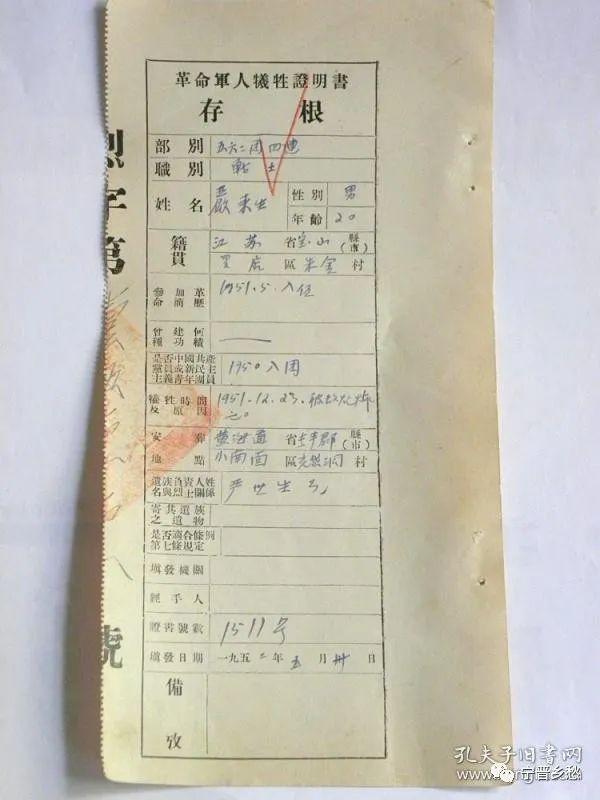 革命軍人犠牲證明書
存根
部別 五六二团四連
職別 戰士
姓名 嚴来生 性別 男
年齡 20
籍貫 江苏 省宝山 (縣市)
罗店 區朱宝 村
參加革命簡歷 1951.5.入伍
曾建何種功績 ——
是否中國共產黨員或新民主主義青年團員 1950入团
犧牲時間及原因 1951.12.23.被敌炮炸
安葬地點 黄海道 省 郡 (縣市)
小南面 區 洞 村
遺族負責人姓名與烈士關係 严世生
寄其遺族之遺物
是否適合條例第七條規定
填發機關
經手人
證書號數 1511号
填發日期 一九五二年五月卅日
備攷
烈字第
號
孔夫子旧书网
宁晋乡愁